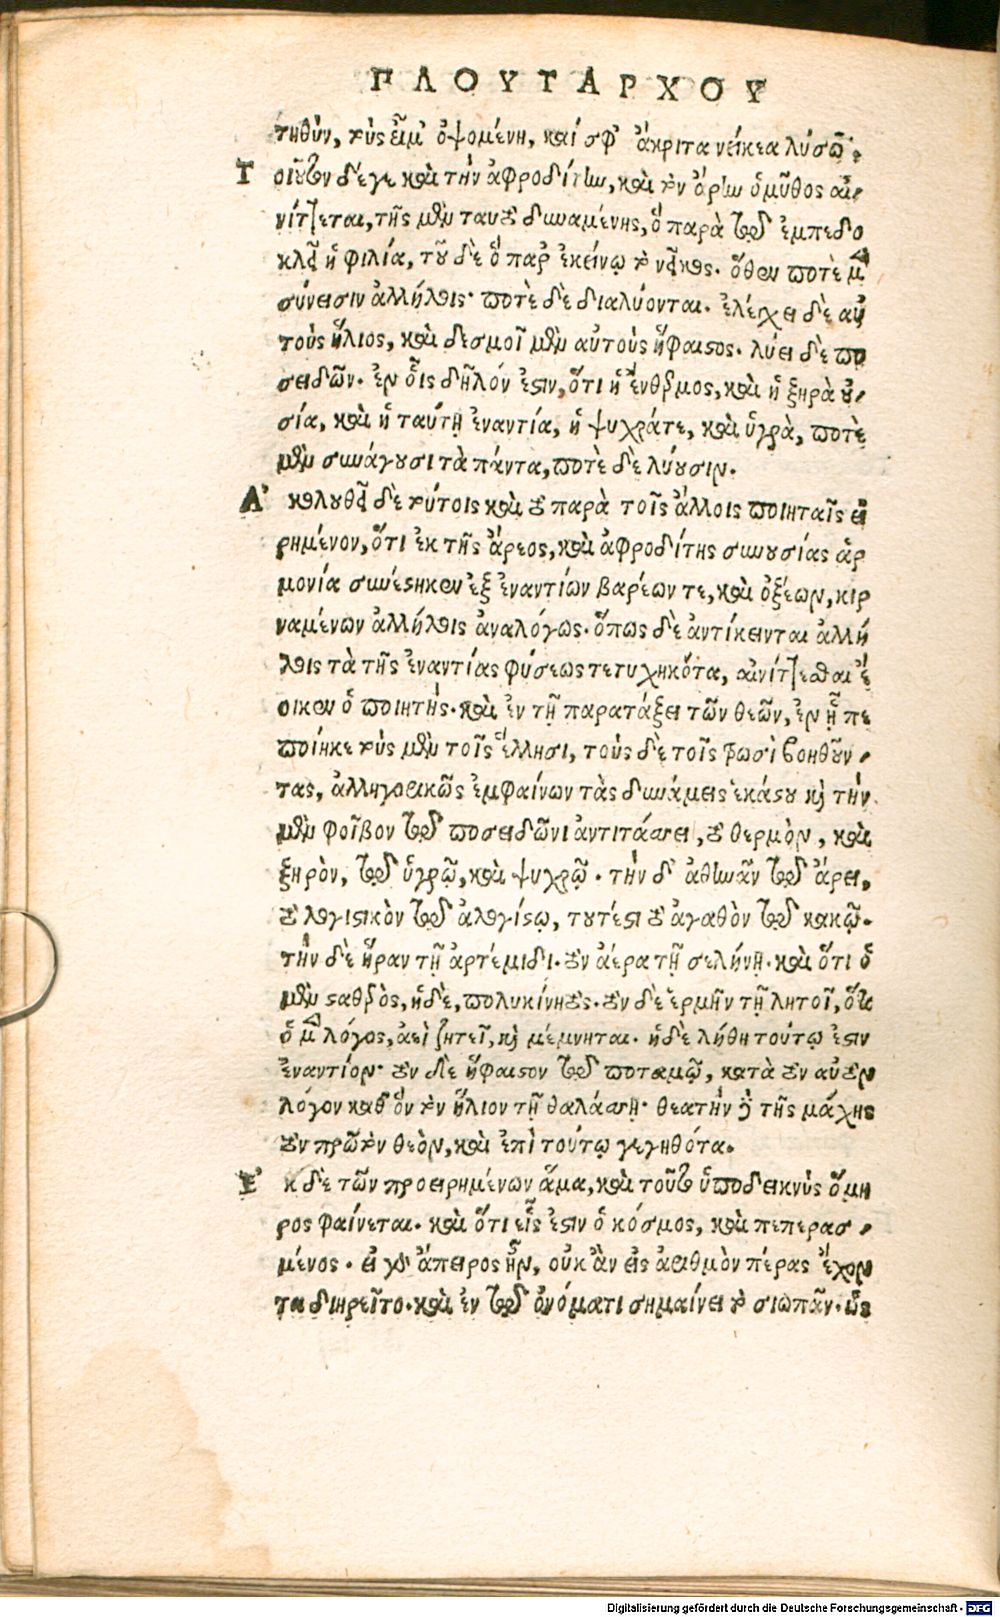 ΠΛΟΥΤΑΡΧΟΥ
τηθύν, τὺς εἶμ' ὀψομένη, καί σφ' ἄκριτα νείκεα λύσω.
Τοιοῦτον δέ γε καὶ τὴν ἀφροδίτην, καὶ τὸν ἄρην ὁ μῦθος αἰ
νίττεται, τῆς μὲν ταυτὸ δυναμένης, ὃ παρὰ τῷ ἐμπεδο
κλεῖ ἡ φιλία, τοῦ δὲ ὃ παρ' ἐκείνῳ τὸ νεῖκος. ὅθεν ποτὲ μ
σύνεισιν ἀλλήλοις· ποτὲ δὲ διαλύονται. ἐλέγχει δὲ αὐ
τοὺς ἥλιος, καὶ δεσμοῖ μὲν αὐτοὺς ἥφαιστος. λύει δὲ πο
σειδῶν. ἐν οἷς δῆλόν ἐστιν, ὅτι ἡ ἔνθερμος, καὶ ἡ ξηρὰ οὐ
σία, καὶ ἡ ταύτῃ ἐναντία, ἡ ψυχρά τε, καὶ ὑγρὰ, ποτὲ
μὲν συνάγουσι τὰ πάντα, ποτὲ δὲ λύουσιν.
Ἀκολουθεῖ δὲ τούτοις καὶ τὸ παρὰ τοῖς ἄλλοις ποιηταῖς εἰ
ρημένον, ὅτι ἐκ τῆς ἄρεος, καὶ ἀφροδίτης συνουσίας ἁρ
μονία συνέστηκεν ἐξ ἐναντίων βαρέων τε, καὶ ὀξέων, κιρ
ναμένων ἀλλήλοις ἀναλόγως. ὅπως δὲ ἀντίκεινται ἀλλή
λοις τὰ τῆς ἐναντίας φύσεως τετυχηκότα, αἰνίττεσθαι ἔ
οικεν ὁ ποιητής. καὶ ἐν τῇ παρατάξει τῶν θεῶν, ἐν ᾗ πε
ποίηκε τοὺς μὲν τοῖς ἕλλησι, τοὺς δὲ τοῖς τρωσὶ βοηθοῦν
τας, ἀλληγορικῶς ἐμφαίνων τὰς δυνάμεις ἑκάστου καὶ τὴν
μὲν φοῖβον τῷ ποσειδῶνι ἀντιτάσσει, τὸ θερμὸν, καὶ
ξηρὸν, τῷ ὑγρῷ, καὶ ψυχρῷ. τὴν δ' ἀθηνᾶν τῷ ἄρει,
τὸ λογιστικὸν τῷ ἀλογίστῳ, τουτέστι τὸ ἀγαθὸν τῷ κακῷ.
τὴν δὲ ἥραν τῇ ἀρτέμιδι. τὸν ἀέρα τῇ σελήνῃ. καὶ ὅτι ὁ
μὲν σταθερὸς, ἡ δὲ, πολυκίνητος. τὸν δὲ ἑρμῆν τῇ λητοῖ, ὅτι
ὁ μ λόγος, ἀεὶ ζητεῖ, καὶ μέμνηται. ἡ δὲ λήθη τούτῳ ἐστὶν
ἐναντίον· τὸν δὲ ἥφαιστον τῷ ποταμῷ, κατὰ τὸν αὐτὸν
λόγον καθ' ὃν τὸν ἥλιον τῇ θαλάσσῃ· θεατὴν δὲ τῆς μάχης
τὸν πρῶτον θεὸν, καὶ ἐπὶ τούτῳ γεγηθότα.
Ἐκ δὲ τῶν προειρημένων ἅμα, καὶ τοῦτο ὑποδεικνὺς ὅμη
ρος φαίνεται. καὶ ὅτι εἷς ἐστιν ὁ κόσμος, καὶ πεπερασ
μένος. εἰ γὰρ ἄπειρος ἦν, οὐκ ἂν εἰς ἀριθμὸν πέρας ἔχον
τα διηρεῖτο. καὶ ἐν τῷ ὀνόματι σημαίνει τὸ σιωπᾶν. ὡς
Digitalisierung gefördert durch die Deutsche Forschungsgemeinschaft - DFG